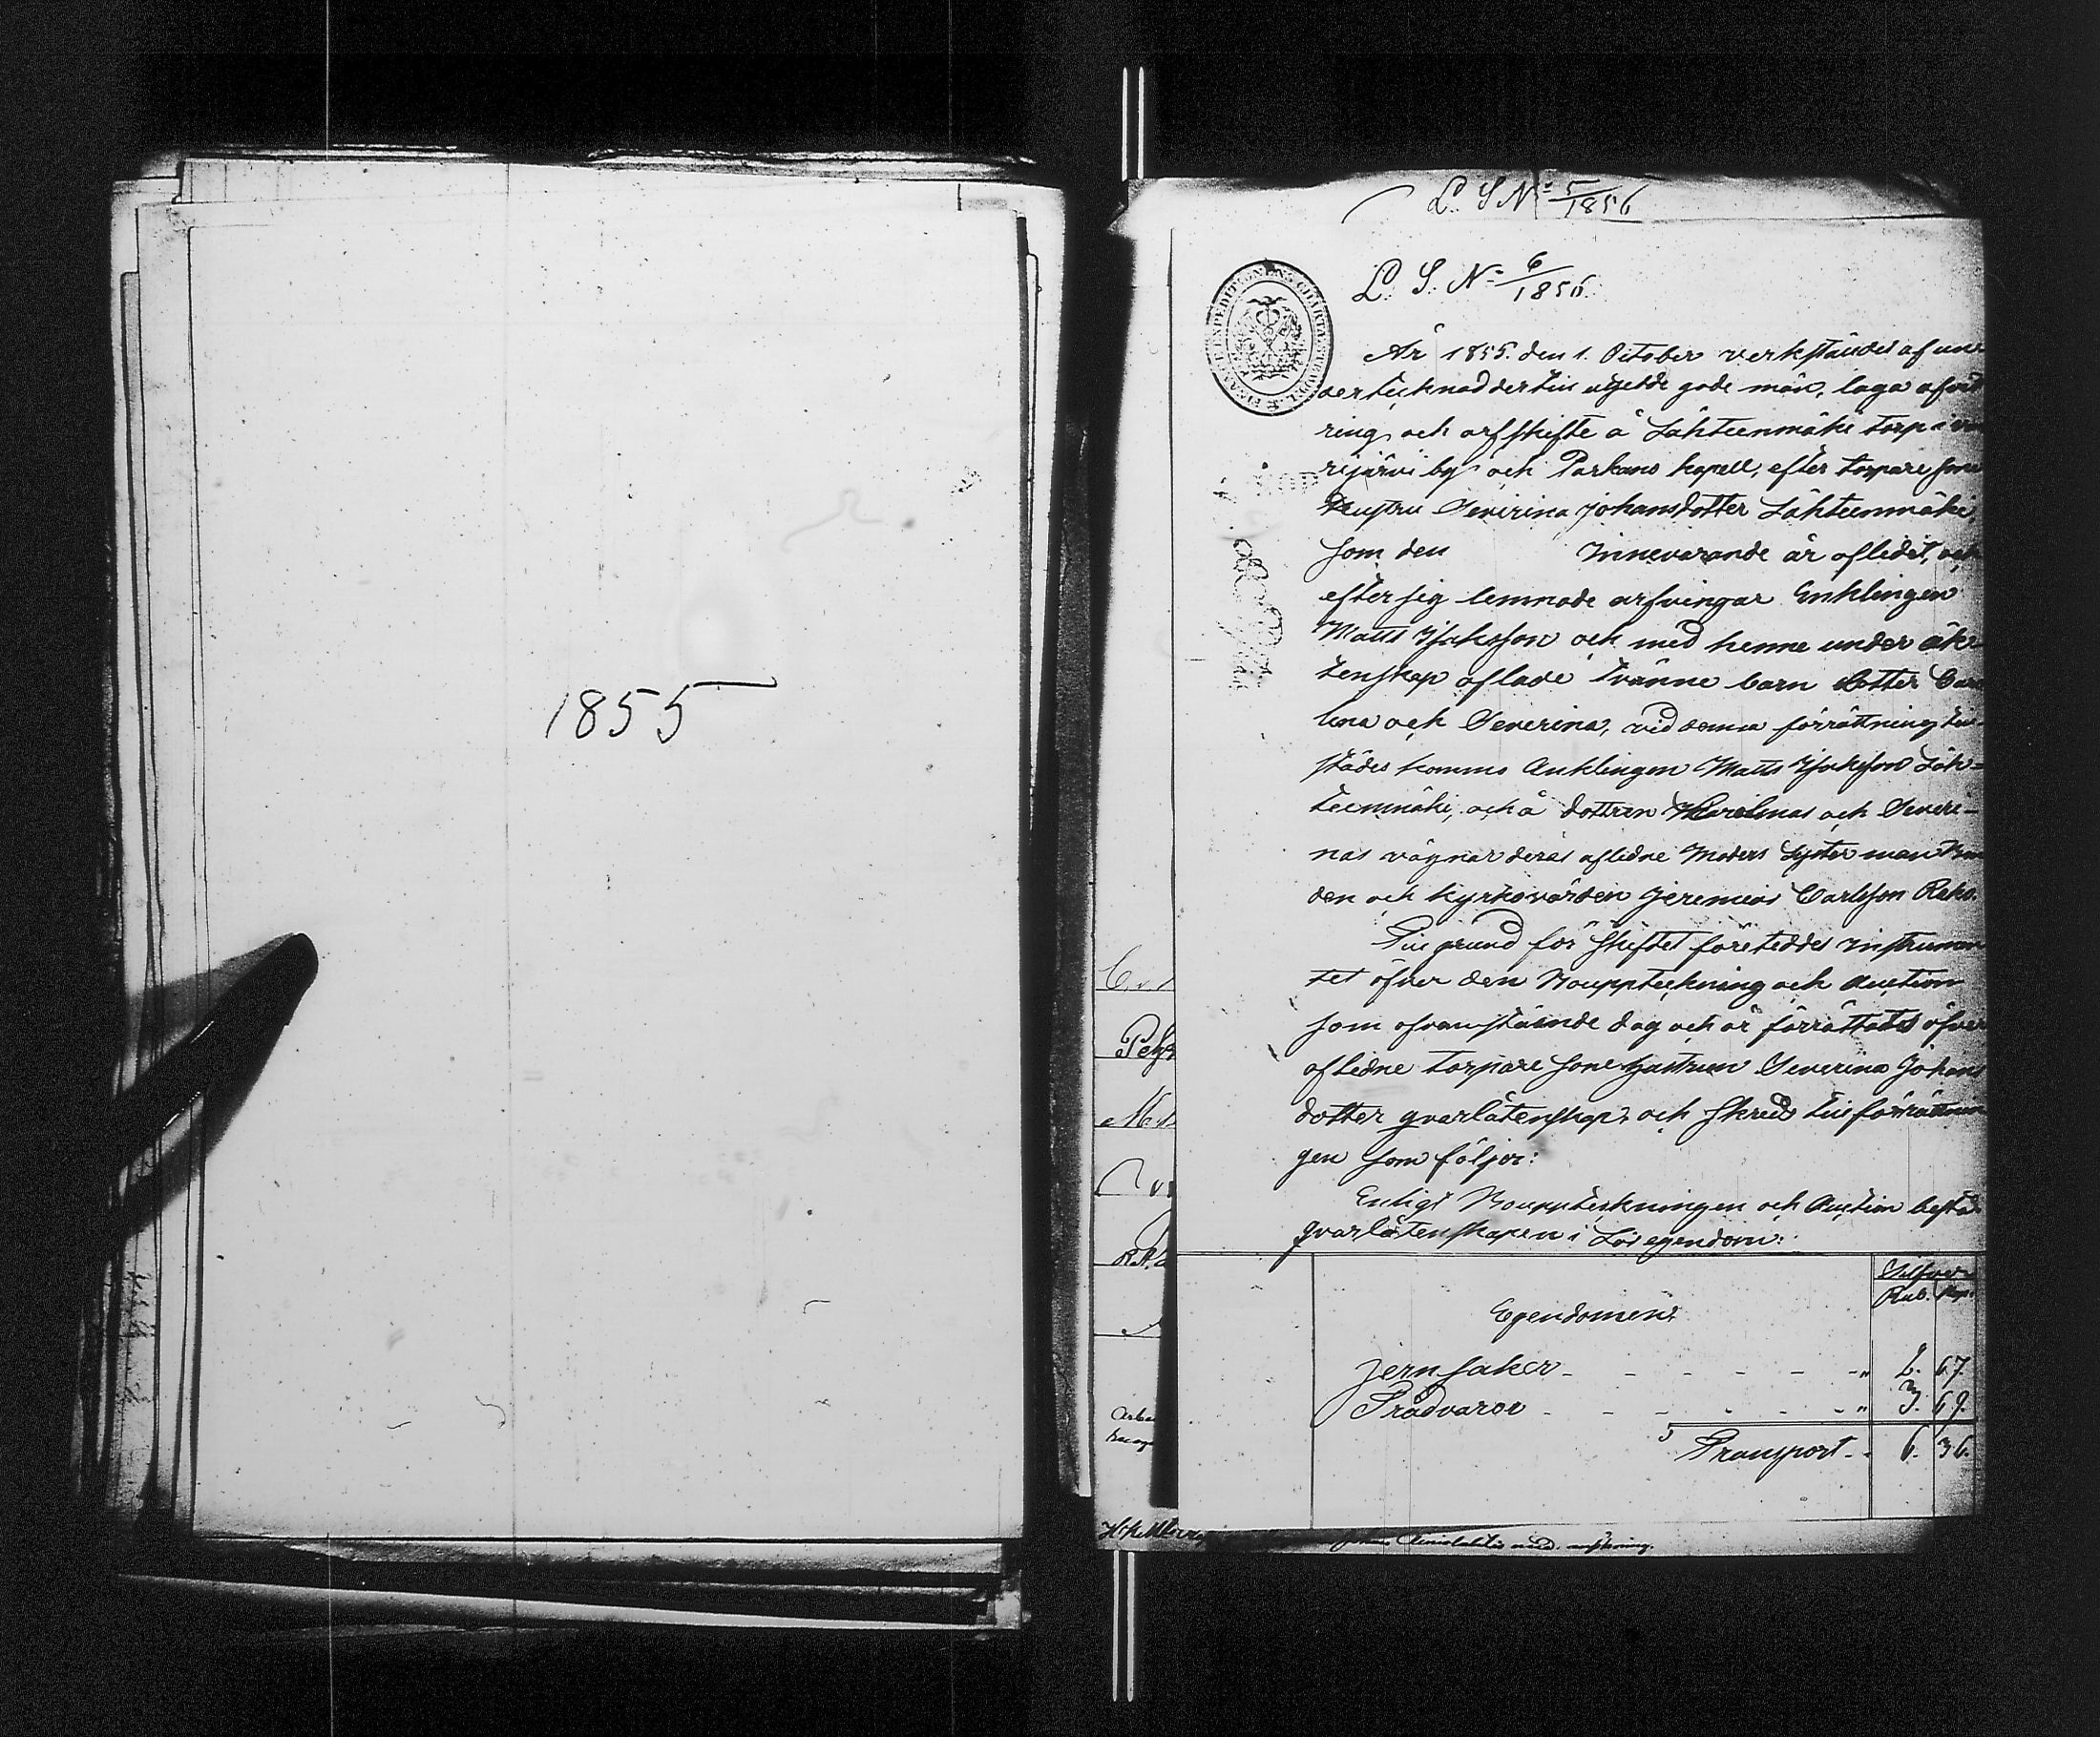 1855
L. S. N:o 5/1856
L. S. N:o 6/1856.
År 1855. den 1. October verkstäldes af un-
dertecknad dertill utsedde gode män, laga afvitt
ring och arfskifte å Lähteenmäki torp i
rejärvi by och Parkano kapell, efter torpare sone
Hustru Severina Johansdotter Lähteenmäki,
som den innevarande år aflidit, och
efter sig lemnade arfvingar Enklingen
Matts Isaksson och med henne under äk-
tenskap aflade tvänne barn dotter Care
lina och Severina, vid denna förrättning till-
städes kommo Enklingen Matts Isaksson Läh-
teenmäki, och å dottren Karolinas och Severi-
nas vägnar deras aflidne Moders Syster man Bon
den och kyrkovärden Jeremias Carlsson Raho.
Till grund för skiftet företeddes instrumen
tet öfver den Bouppteckning och Auction
som ofvanstående dag och år förrättades öfver
aflidne torpare sone hustrun Severina Johans
dotter qvarlåtenskap, och skreds till förrättnin
gen som följer:
Enligt Bouppteckningen och Auction bestod
qvarlåtenskapen i Lös egendom:
Silfver
Egendomen. Rub. Kop.
Jern saker - - - - - - " 2. 67.
Trädvaror - - - - - - " 3. 69.
Transport - - 6. 36.